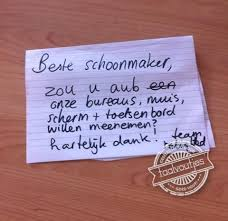 Beste schoonmaker,
zou u aub een
onze bureaus, muis,
scherm + toetsenbord
willen meenemen?
hartelijk dank! team
taalvoutjes